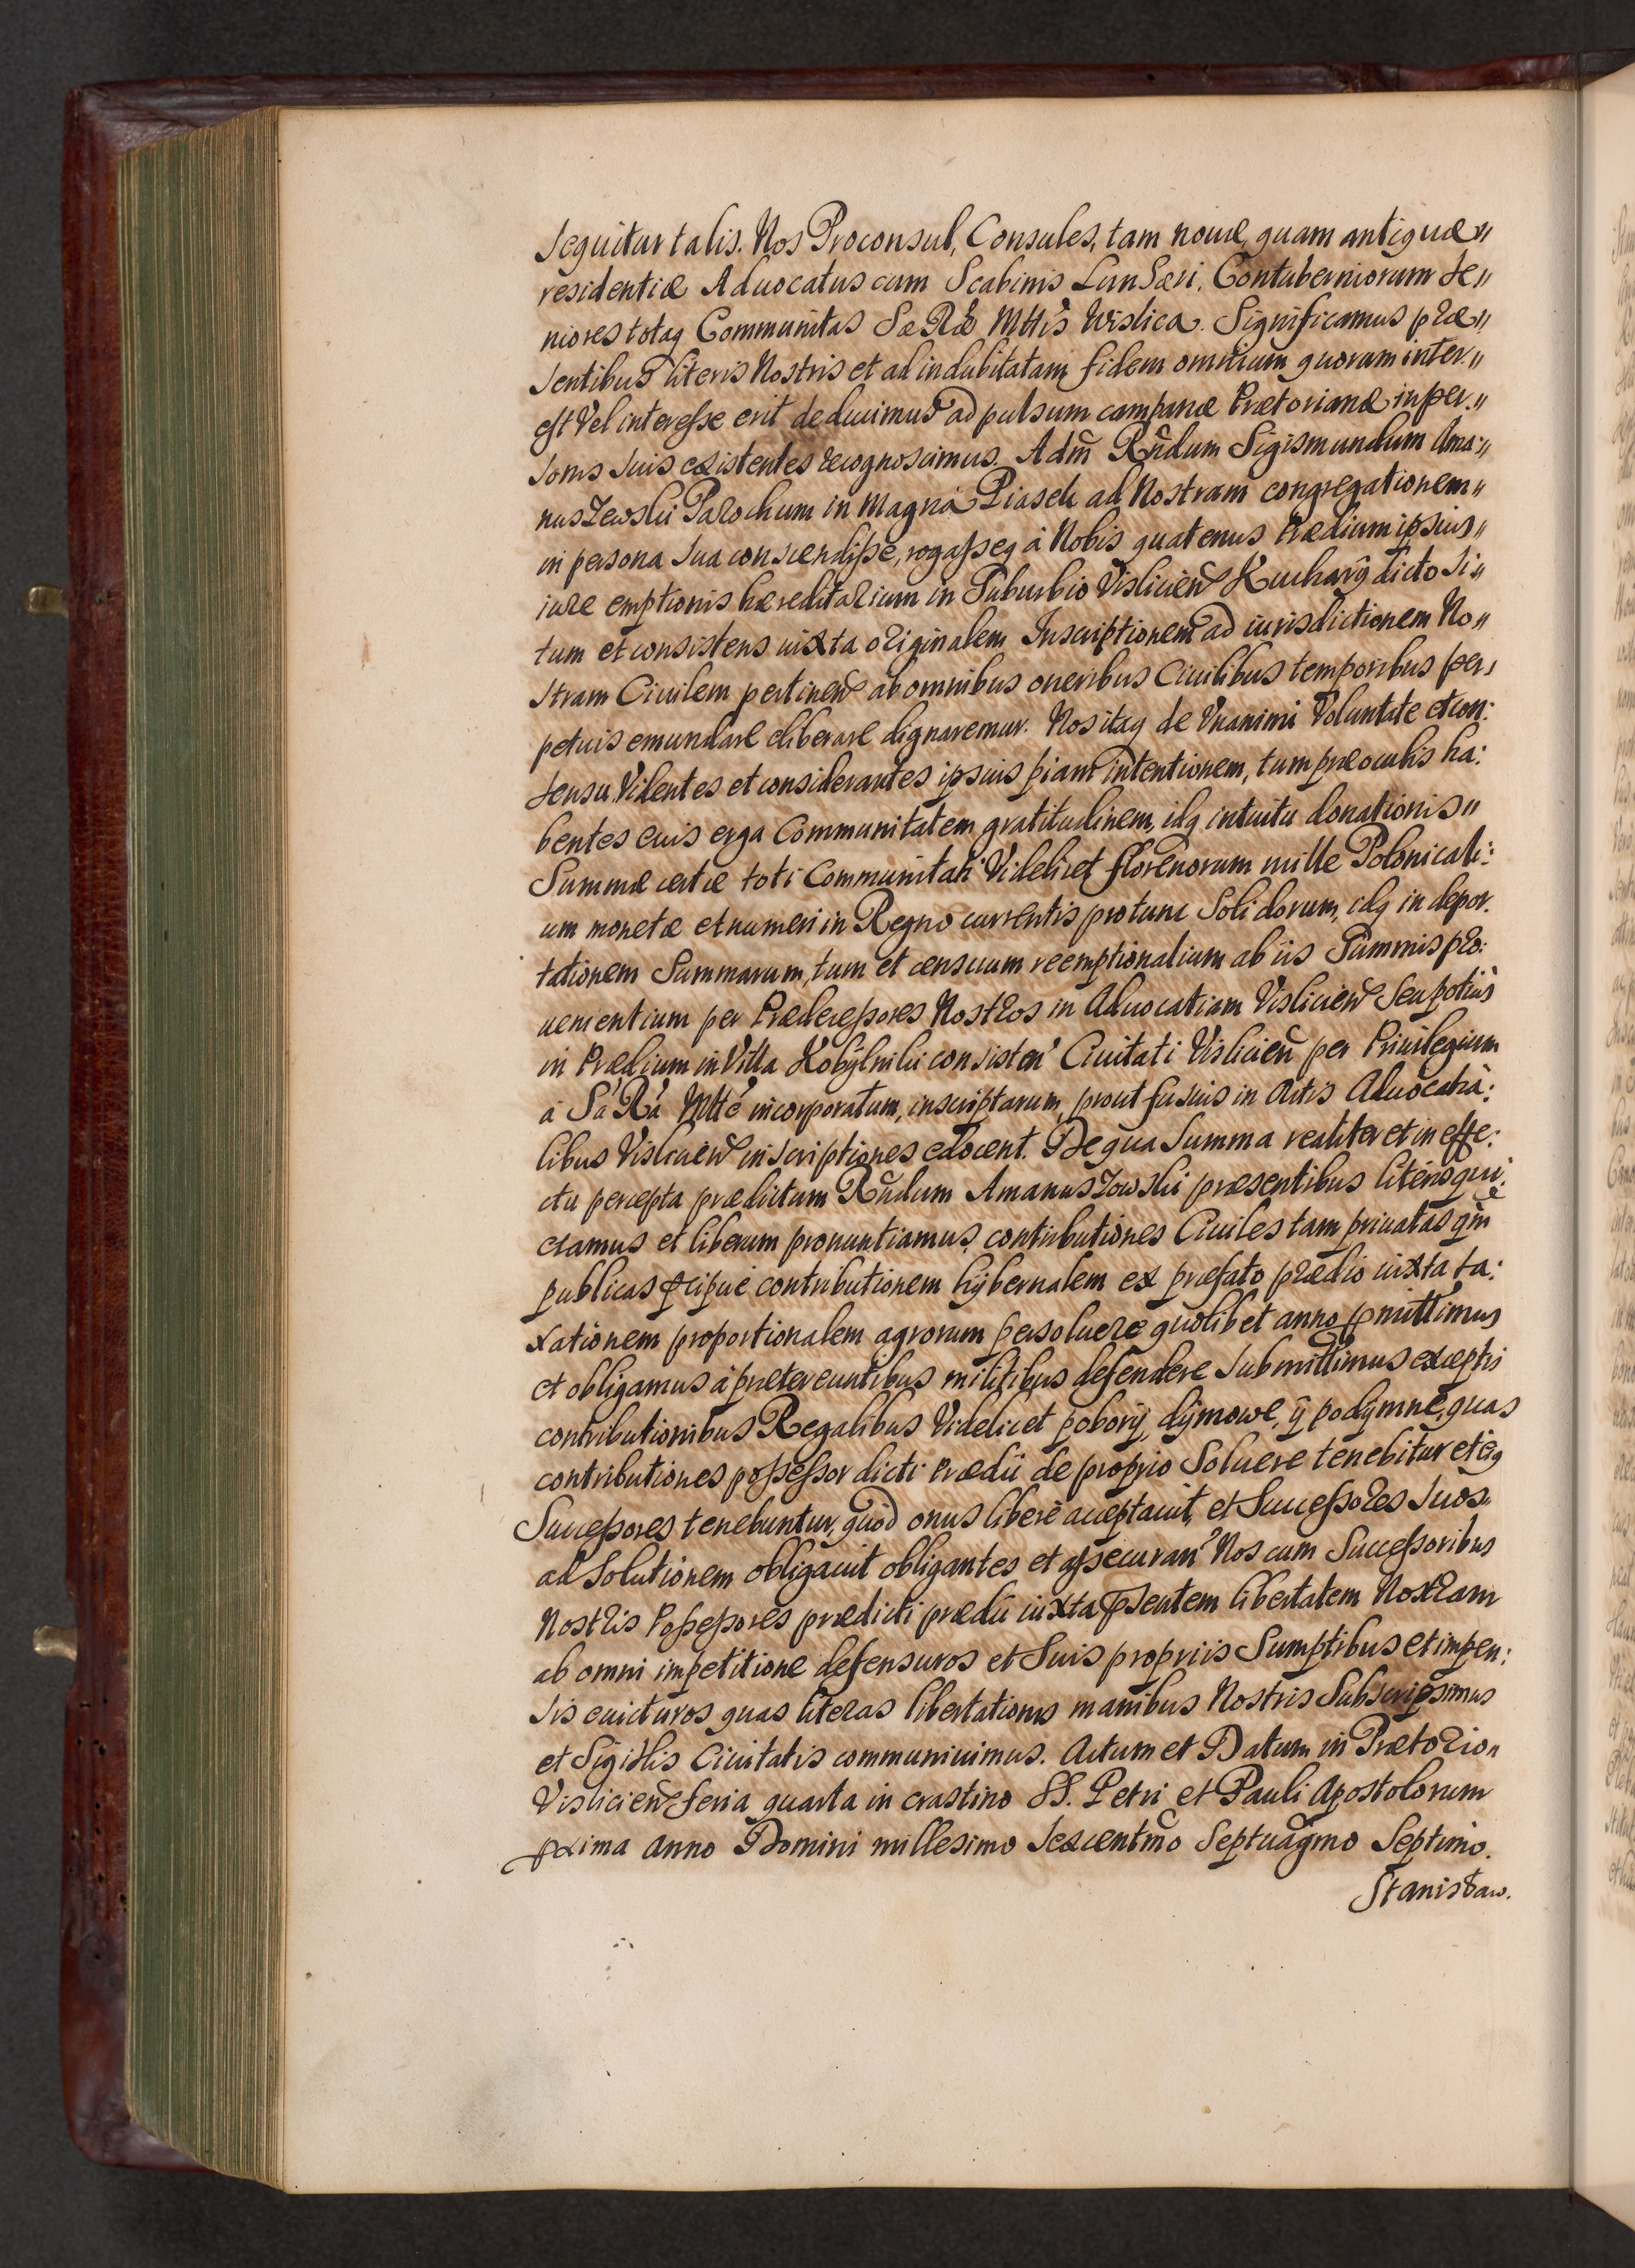 sequitur talis. Nos Proconsul, Consules, tam nouæ, quam antiquæ〃
residentiæ Aduocatus cum Scabinis Lansæri, Contuberniorum se〃
niores totaq Communitas Sæ Ræ Mttis Wislica. Significamus præ〃
sentibus literis Nostris et ad indubitatam fidem omnium quorum inter〃
est Vel interesse erit deducimus ad pulsum campanæ Prætorianæ in per〃
sonis suis existentes recognoscimus. Adm̃ Rñdum Sigismundum Ama〃
nuszewski Parochum in Magna Piasek ad Nostram congregationem〃
in persona sua conscendisse, rogasseq à Nobis quatenus Prædium ipsius〃
iure emptionis hæreditarium in Suburbio Visliciens Kuchary dicto si〃
tum et consistens iuxta originalem Inscriptionem ad iurisdictionem No〃
stram Ciuilem pertinens ab omnibus oneribus Ciuilibus temporibus per〃
petuis emundare eliberare dignaremur. Nos itaq de Vnanimi Voluntate et con:
sensu Videntes et considerantes ipsius piam intentionem, tum præ oculis ha:
bentes euis erga Communitatem gratitudinem, idq intuitu donationis〃
Summæ certæ toti Communitati Videlicet florenorum mille Polonicali:
um monetæ et numeri in Regno currentis pro tunc Solidorum, idq in depor:
tationem Summarum, tum et censuum reemptionalium ab iis Summis pro:
uenientium per Prædecessores Nostros in Aduocatiam Visliciens seu potius
in Prædium in Villa Kobÿlniki consisteñ Ciuitati Vislicieñ per Priuilegium
à Sa Ra Mtte incorporatum, inscriptarum, prout fusius in Actis Aduocatia:
libus Visliciens inscriptiones edocent. De qua Summa realiter et in effe:
ctu percepta prædictum Rñdum Amanuszowski præsentibus literis qui:
ctamus et liberum pronuntiamus, contributiones Ciuiles tam priuatas qm̃
publicas pcipuè contributionem hÿbernalem ex præfato prædio iuxta ta:
xationem proportionalem agrorum persoluere quolibet anno pmittimus
et obligamus à prætereuntibus militibus defendere submittimus exceptis
contributionibus Regalibus Videlicet poborÿ, dÿmowe, ÿ podÿmne, quas
contributiones possessor dicti Prædii de proprio Soluere tenebitur et eiq
Successores tenebuntur, quod onus liberè acceptauit, et Successores suos〃
ad Solutionem obligauit obligantes et assecurañ Nos cum Successoribus
Nostris Possessores prædicti prædii iuxta psentem libertatem Nostram
ab omni impetitione defensuros et Suis propriis Sumptibus et impen:
sis euicturos quas literas libertationis manibus Nostris Subscripsimus
et Sigillis Ciuitatis communiuimus. Actum et Datum in Prætorio〃
Visliciens feria quarta in crastino SS. Petri et Pauli Apostolorum
pxima Anno Domini millesimo sexcentm̃o Septuagm̃o Septimo.
Stanisław.